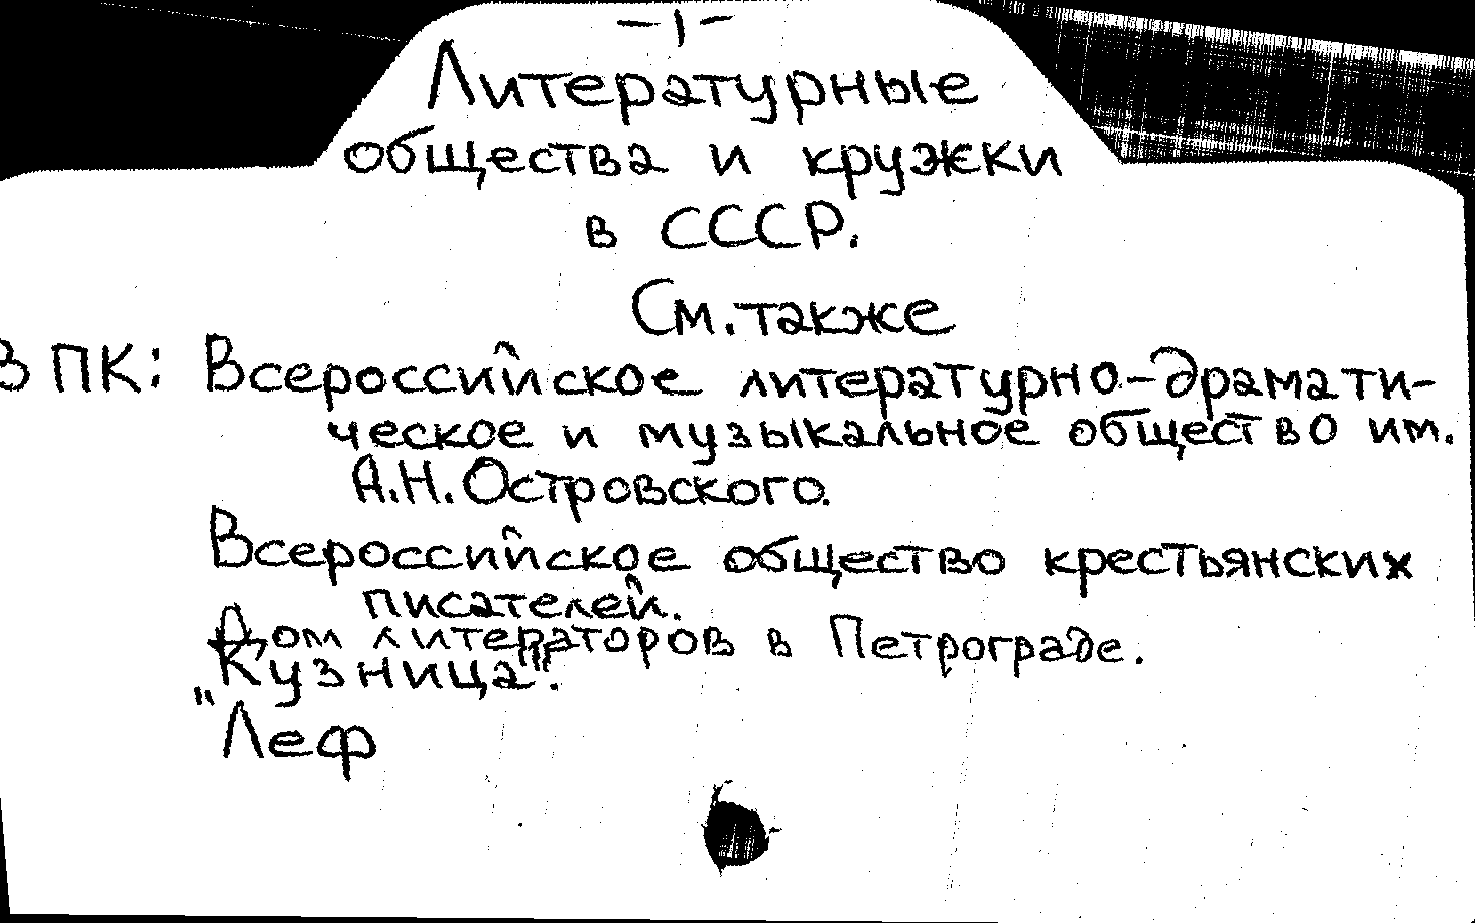 -1-
Литературные
общества и кружки
в СССР.
См. также
В ПК: Всероссийское литературно-драмати-
ческое и музыкальное общество им.
А.Н. Островского.
Всероссийское общество крестьянских
писателей.
Дом литераторов в Петрограде.
"Кузница".
Леф